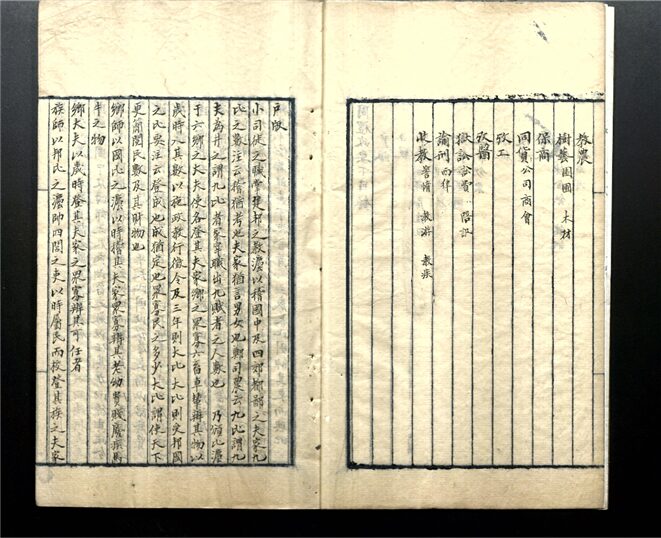 教農
樹藝 園圃 木材
保商
同貨 公司 商會
攷工
攷醫
獄訟
諭刑 西律
收教
戶版
小司徒之職掌建邦之教灋以稽國中及四郊都鄙之夫家九
比之數注云稽猶考也夫家猶言男女也鄭司農云九比謂九
夫為井𤣥謂九比者冢宰職出九賦者之人數也 乃頒比灋
于六鄉之大夫使各登其鄉之眾寡六畜車輦辨其物以
歲時入其數以施政教行徵令及三年則大比大比則受邦國
之比要注云登成也成猶定也眾寡民之多少大比謂使天下
更簡閱民數及其財物也
鄉師以國比之灋以時稽其夫家眾寡辨其老幼貴賤廢疾馬
牛之物
鄉大夫以歲時登其夫家之眾寡辨其可任者
族師以邦比之灋帥四閭之吏以時屬民而校登其族之夫家